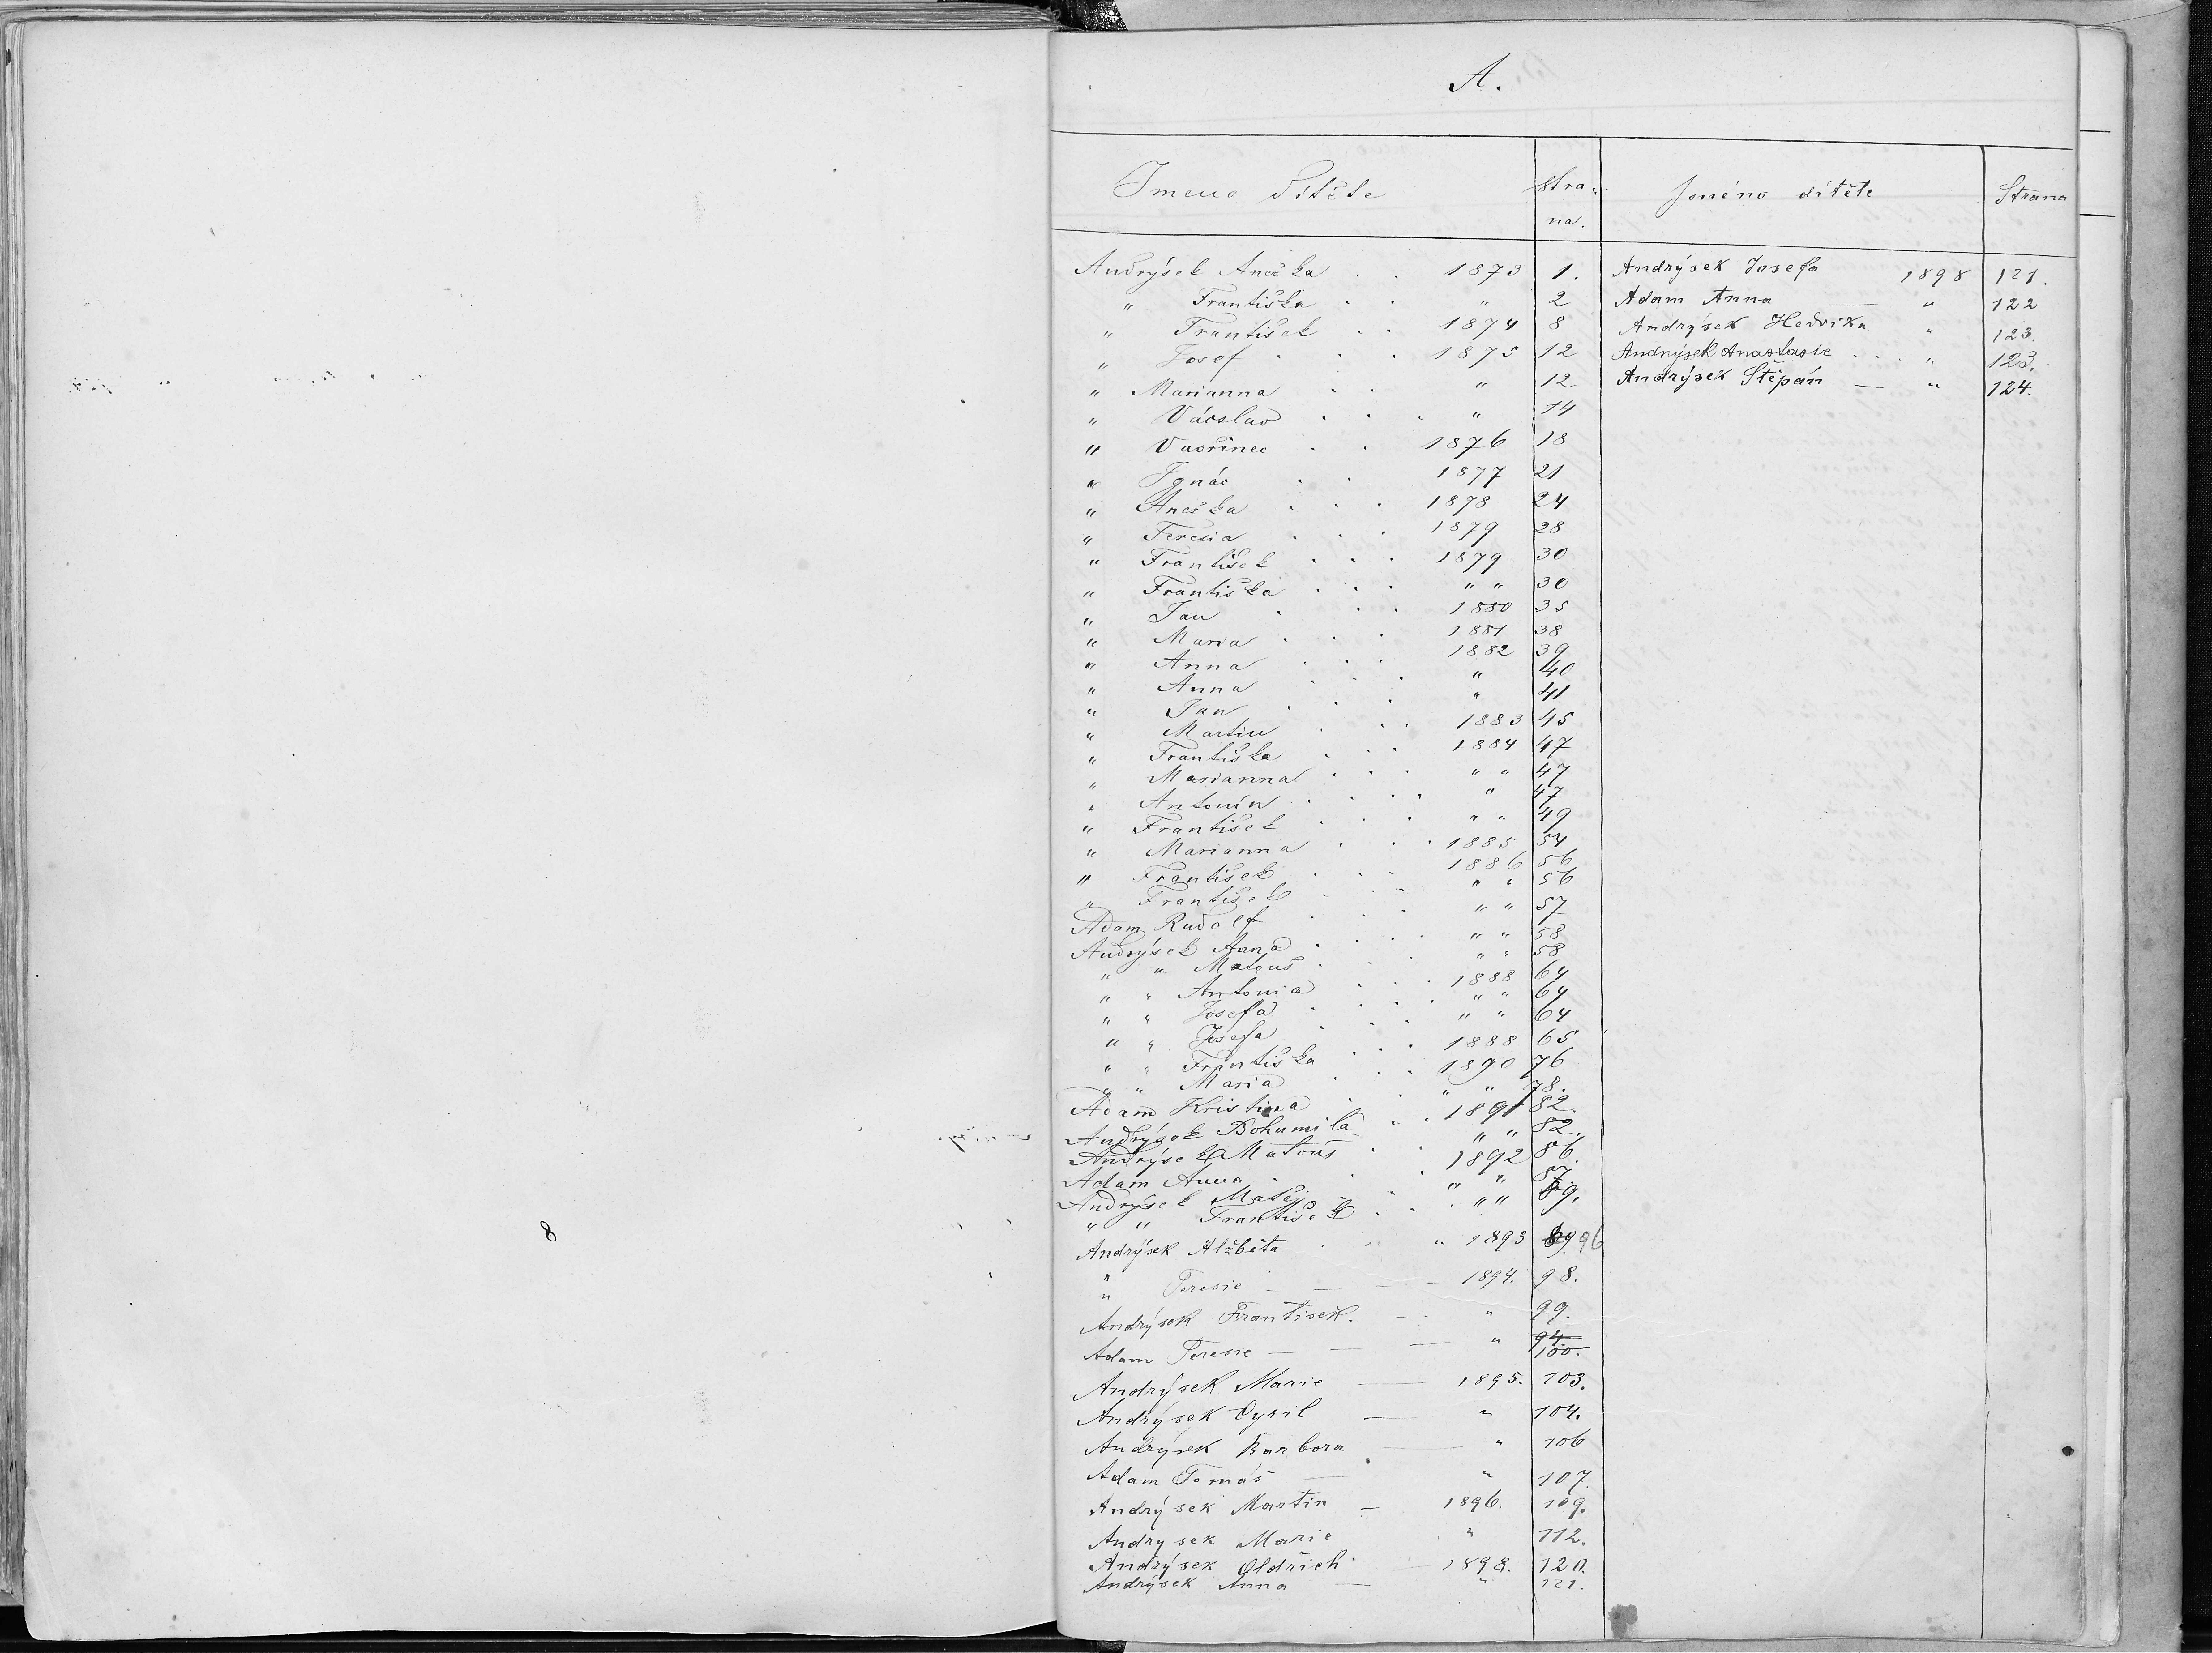 A.
Jmeno Dítěte
Stra-
na.
Andrýsek Anežka . . 1873 1.
" Františka . . " 2
" František . . 1874 8
" Josef . . . 1875 12
" Marianna . . " 12
" Václav . . . " 14
" Vavřinec . . 1876 18
" Ignác . . 1877 21
" Anežka . . . 1878 24
" Teresia . . . 1879 28
" František . . . 1879 30
" Františka . . . " " 30
" Jan . . . 1880 35
" Maria . . . 1881 38
" Anna . . . 1882 39
" Anna . . . " 40
" Jan . . . " 41
" Martin . . . 1883 45
" Františka . . . 1884 47
" Marianna . . . " " 47
" Antonín . . . . " 47
" František . . . " " 49
" Marianna . . . 1885 54
" František . . . 1886 56
" František . . . " " 56
Adam Rudolf . . . " " 57
Andrýsek Anna . . . " " 58
" " Matouš . . . " " 58
" " Antonia . . . 1888 64
" " Josefa . . . " " 64
" " Josefa . . . " " 64
" " Františka . . . 1888 65
" " Maria . . . 1890 76
Adam Kristina . . " " 78.
Andrýsek Bohumila . . 1891 82.
Andrýsek Matouš . . " " 82.
Adam Anna . . . 1892 86.
Andrýsek Matěj . . . " " 87
" " František . . . " " 89.
Andrýsek Alžběta . . " 1893 89 96
" Teresie — — 1894. 98.
Andrýsek František. — " 99.
Adam Teresie — — — " 94.
100.
Andrýsek Marie — 1895. 103.
Andrýsek Cyril — " 104.
Andrýsek Barbora — " 106
Adam Tomáš — " 107.
Andrýsek Martin — 1896. 109.
Andrysek Marie " 112.
Andrýsek Oldřich — 1898. 120.
Andrýsek Anna — " 121.
Jméno dítěte
Strana
Andrýsek Josefa 1898 121.
Adam Anna — " 122
Andrýsek Hedvika " 123.
Andrýsek Anastasie . . . " 123.
Andrýsek Štěpán — " 124.
8